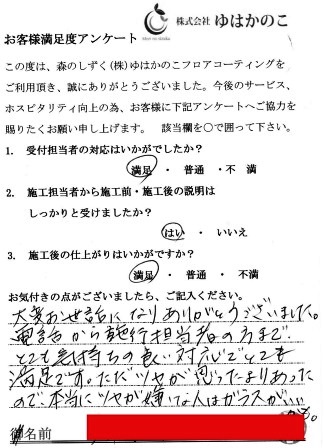 株式会社 ゆはかのこ
お客様満足度アンケート
この度は、森のしずく(株)ゆはかのこフロアコーティングを
ご利用頂き、誠にありがとうございました。今後のサービス、
ホスピタリティ向上の為、お客様に下記アンケートへご協力を
賜りたくお願い申し上げます。 該当欄を○で囲って下さい。
1. 受付担当者の対応はいかがでしたか?
満足 ・ 普通 ・ 不 満
2. 施工担当者から施工前・施工後の説明は
しっかりと受けましたか?
はい ・ いいえ
3. 施工後の仕上がりはいかがですか?
満足 ・ 普通 ・ 不満
お気付きの点がございましたら、ご記入ください。
大変お世話になりありがとうございました。
電話から施行担当者の方まで
とても気持ちの良い対応でとても
満足です。ただツヤが思ったよりあった
ので本当にツヤが嫌いな人はガラスがいい
かも。
名前